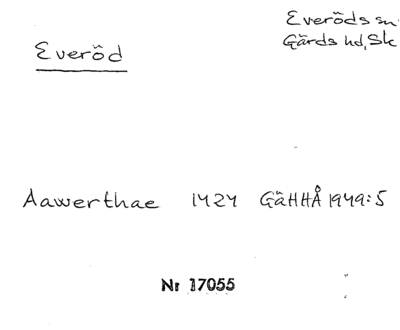 Everöds sn
Gärds hd, Sk
Everöd
Aawerthae 1424 GäHHÅ 1949:5
Nr 17055